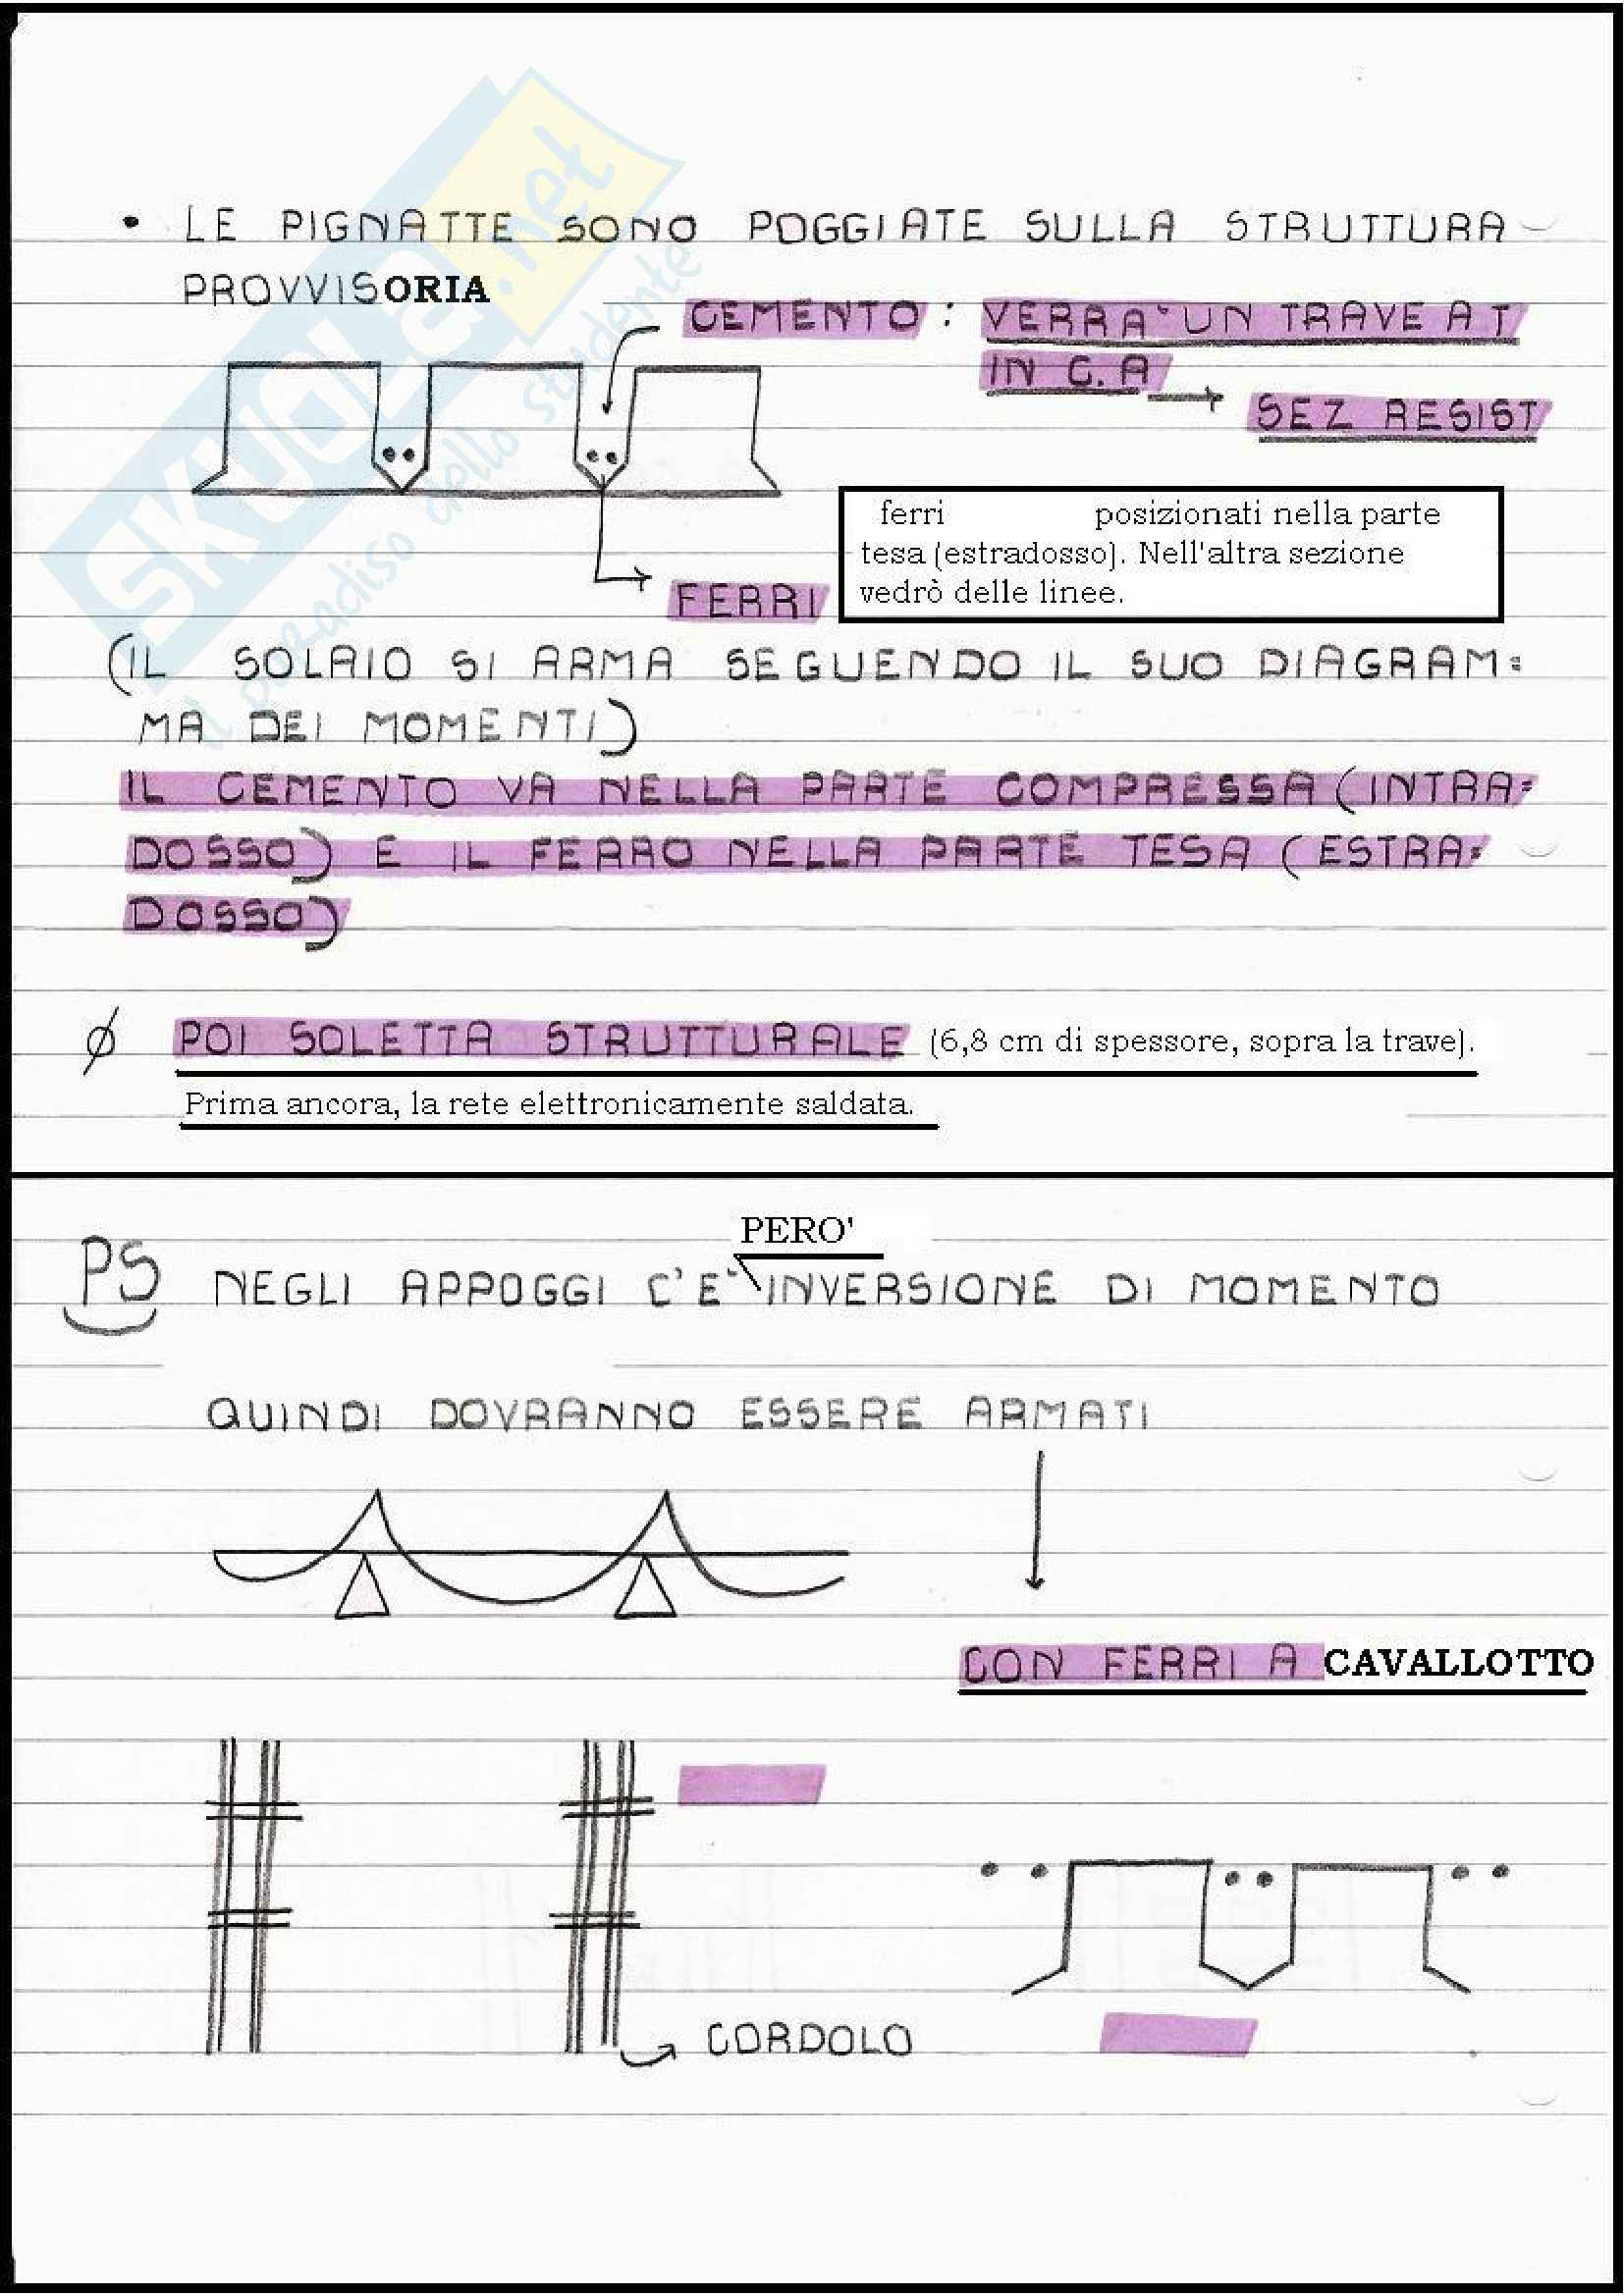 SKUOLA.net
il paradiso dello studente
• LE PIGNATTE SONO POGGIATE SULLA STRUTTURA
PROVVISORIA
CEMENTO : VERRA' UN TRAVE A T
IN C.A → SEZ RESIST
ferri posizionati nella parte
tesa (estradosso). Nell'altra sezione
vedrò delle linee.
FERRI
(IL SOLAIO SI ARMA SEGUENDO IL SUO DIAGRAM=
MA DEI MOMENTI)
IL CEMENTO VA NELLA PARTE COMPRESSA (INTRA=
DOSSO) E IL FERRO NELLA PARTE TESA (ESTRA=
DOSSO)
ø POI SOLETTA STRUTTURALE (6,8 cm di spessore, sopra la trave).
Prima ancora, la rete elettronicamente saldata.
PERO'
PS NEGLI APPOGGI C'E' INVERSIONE DI MOMENTO
QUINDI DOVRANNO ESSERE ARMATI
CON FERRI A CAVALLOTTO
CORDOLO